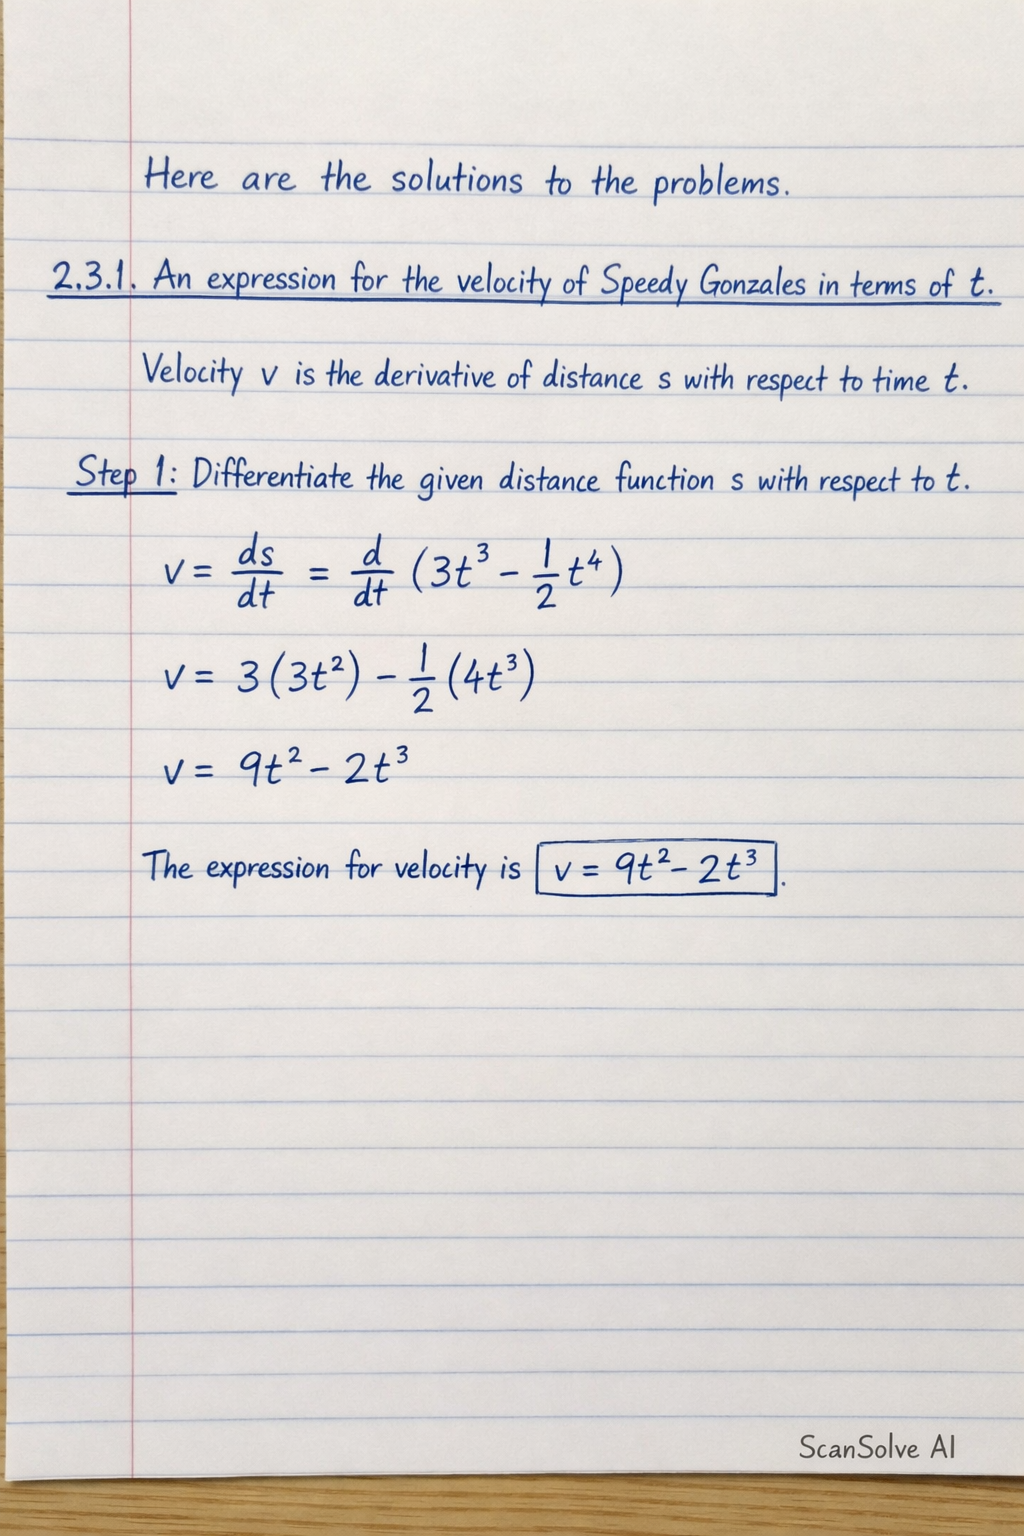 Here are the solutions to the problems.
2.3.1. An expression for the velocity of Speedy Gonzales in terms of t.
Velocity v is the derivative of distance s with respect to time t.
Step 1: Differentiate the given distance function s with respect to t.
v = ds/dt = d/dt (3t³ − 1/2 t⁴)
v = 3(3t²) − 1/2 (4t³)
v = 9t² − 2t³
The expression for velocity is v = 9t² − 2t³.
ScanSolve AI